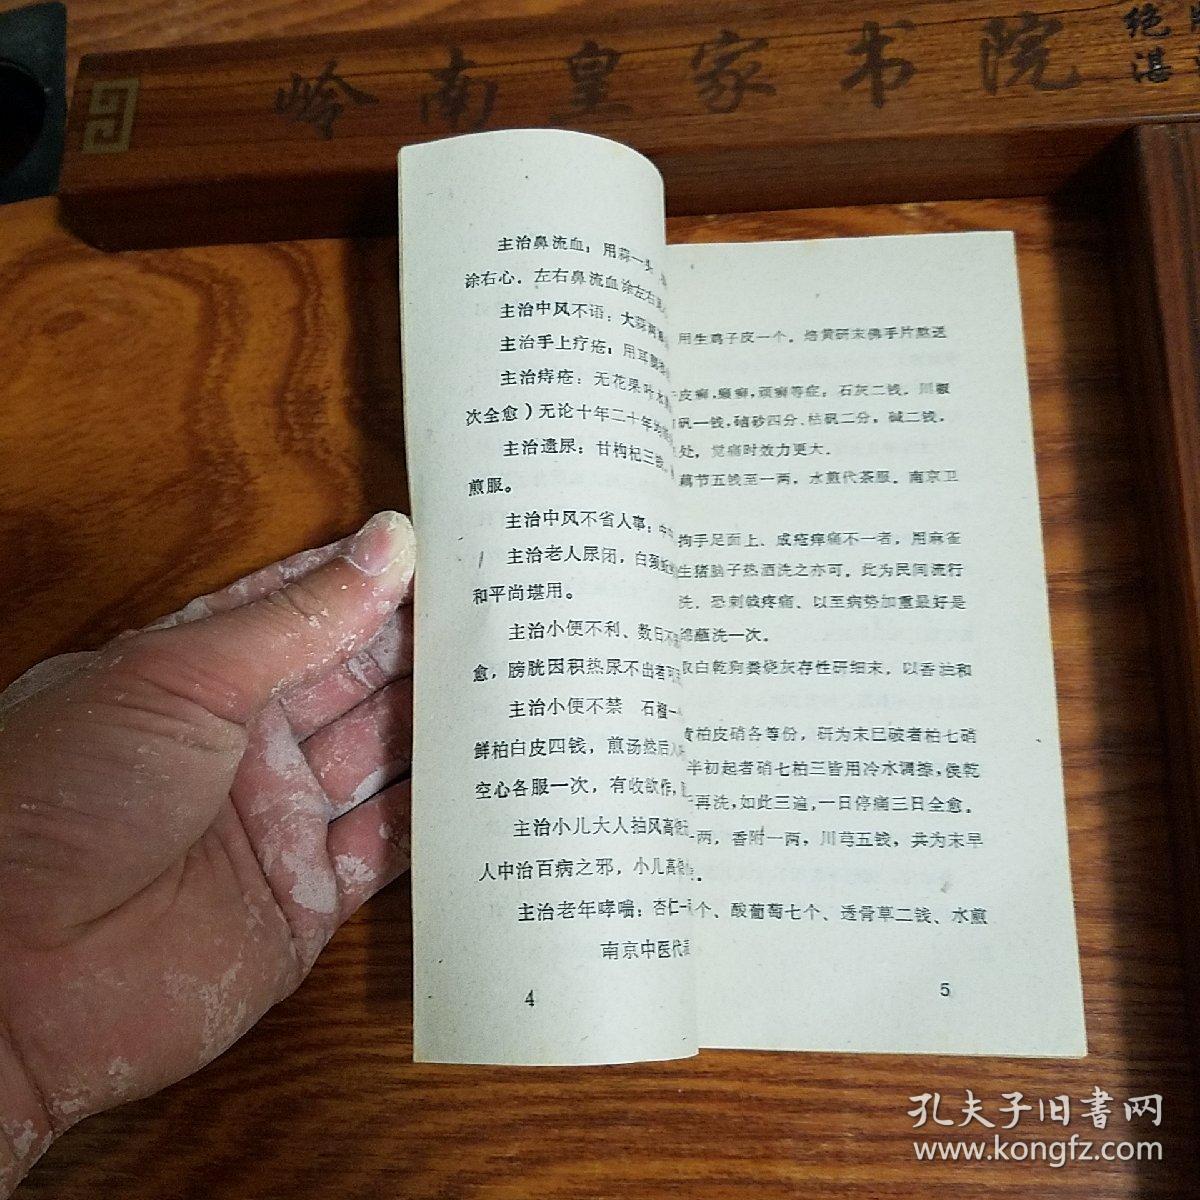 岭南皇家书院
绝
湛
主治鼻流血：用蒜一头
涂右心．左右鼻流血涂左右
主治中风不语：大蒜两
主治手上疔疮：用耳
主治痔疮：无花果叶水
次全愈）无论十年二十年的
主治遗尿：甘枸杞三钱
煎服。
主治中风不省人事：
主治老人尿闭，白颈
和平尚堪用。
主治小便不利、数日不
愈，膀胱因积热尿不出者可
主治小便不禁　石榴一
鲜柏白皮四钱，煎汤然后
空心各服一次，有收欲作，
主治小儿大人抽风高烧
人中治百病之邪，小儿高烧
主治老年哮喘：杏仁一
南京中医代表
4
用生鸡子皮一个．焙黄研末佛手片熬送
皮癣，癞癣，顽癣等症：石灰二钱．川椒
矾一钱，硇砂四分、枯矾二分，碱二钱．
处，觉痛时效力更大．
藕节五钱至一两，水煎代茶服．南京卫
拘手足面上、成疮痒痛不一者，用麻雀
生猪脑子热酒洗之亦可．此为民间流行
洗．恐刺戟疼痛、以至病势加重最好是
蘸洗一次．
取白乾狗粪烧灰存性研细末，以香油和
黄柏皮硝各等份，研为末已破者柏七硝
半初起者硝七柏三皆用冷水调擦，俟乾
再洗，如此三遍，一日停痛三日全愈．
一两，香附一两，川芎五钱，共为末早
个、酸葡萄七个、透骨草二钱、水煎
5
孔夫子旧書网
www.kongfz.com